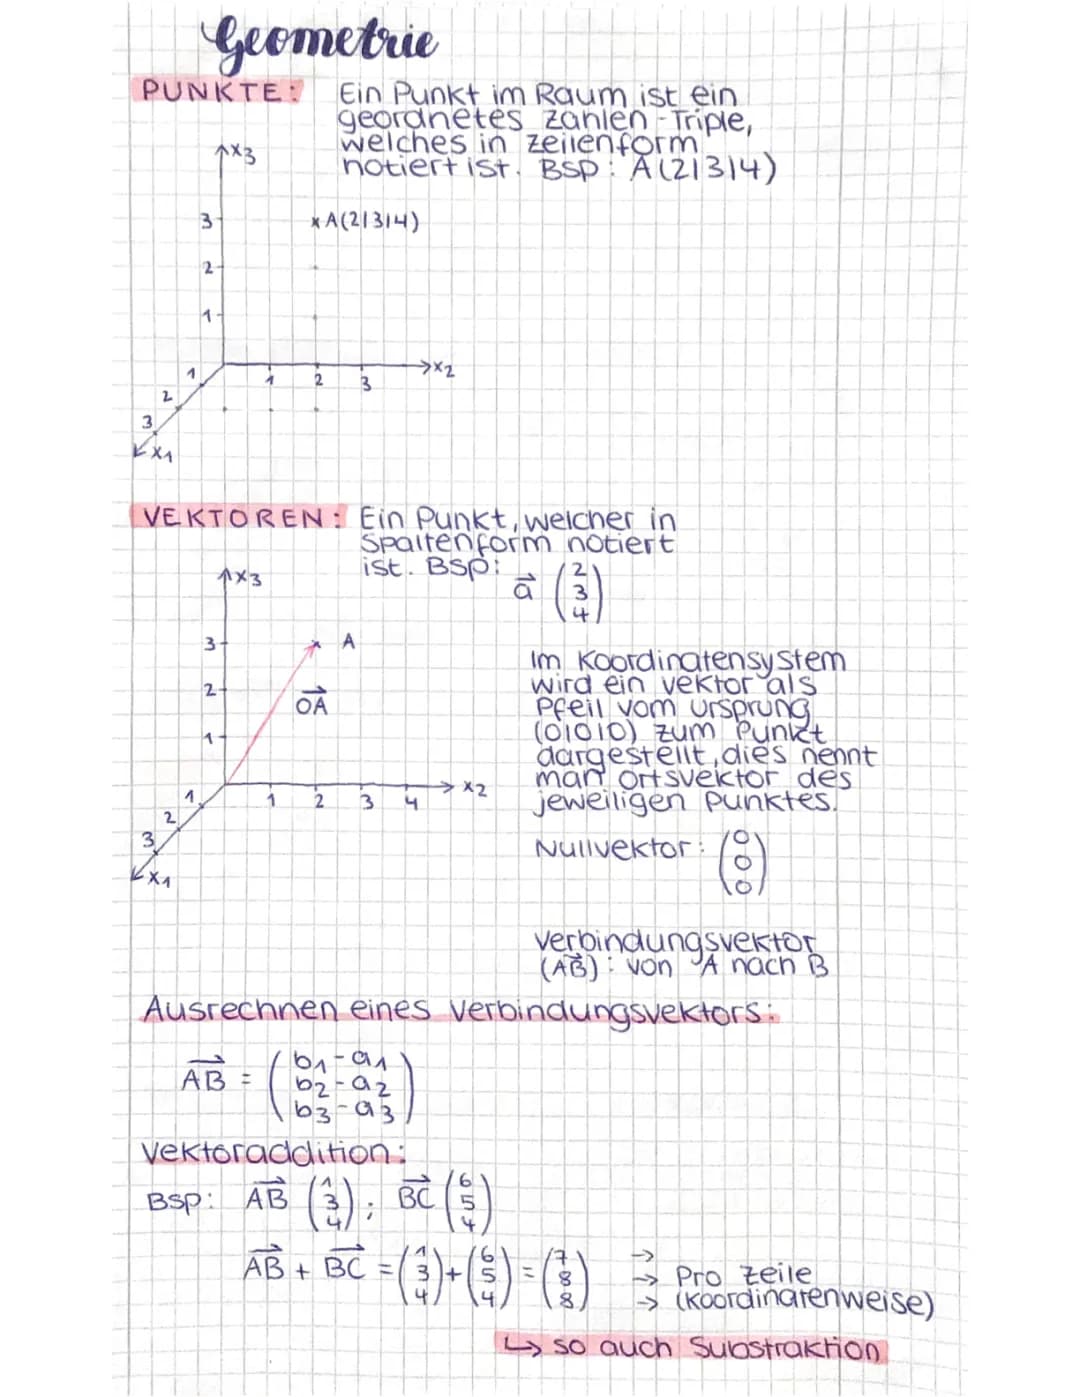 Geometrie
PUNKTE: Ein Punkt im Raum ist ein
geordnetes Zahlen-Triple,
welches in Zeilenform
notiert ist. BSP: A(2|3|4)
x3
3
x A(2|3|4)
2
1
x2
1 2 3
1
2
3
x1
VEKTOREN: Ein Punkt, welcher in
Spaltenform notiert
ist. BSP:
a⃗ (2 3 4)
x3
3
A
2
OA⃗
1
x2
1 2 3 4
1
2
3
x1
Im Koordinatensystem
wird ein Vektor als
Pfeil vom Ursprung
(0|0|0) zum Punkt
dargestellt, dies nennt
man Ortsvektor des
jeweiligen Punktes.
Nullvektor: (0 0 0)
Verbindungsvektor
(AB⃗): von A nach B
Ausrechnen eines Verbindungsvektors:
AB⃗ = (b1-a1 b2-a2 b3-a3)
Vektoraddition:
BSP: AB⃗ (1 3 4); BC⃗ (6 5 4)
AB⃗ + BC⃗ = (1 3 4) + (6 5 4) = (7 8 8)
→
→ Pro Zeile
→ (Koordinatenweise)
↳ so auch Substraktion